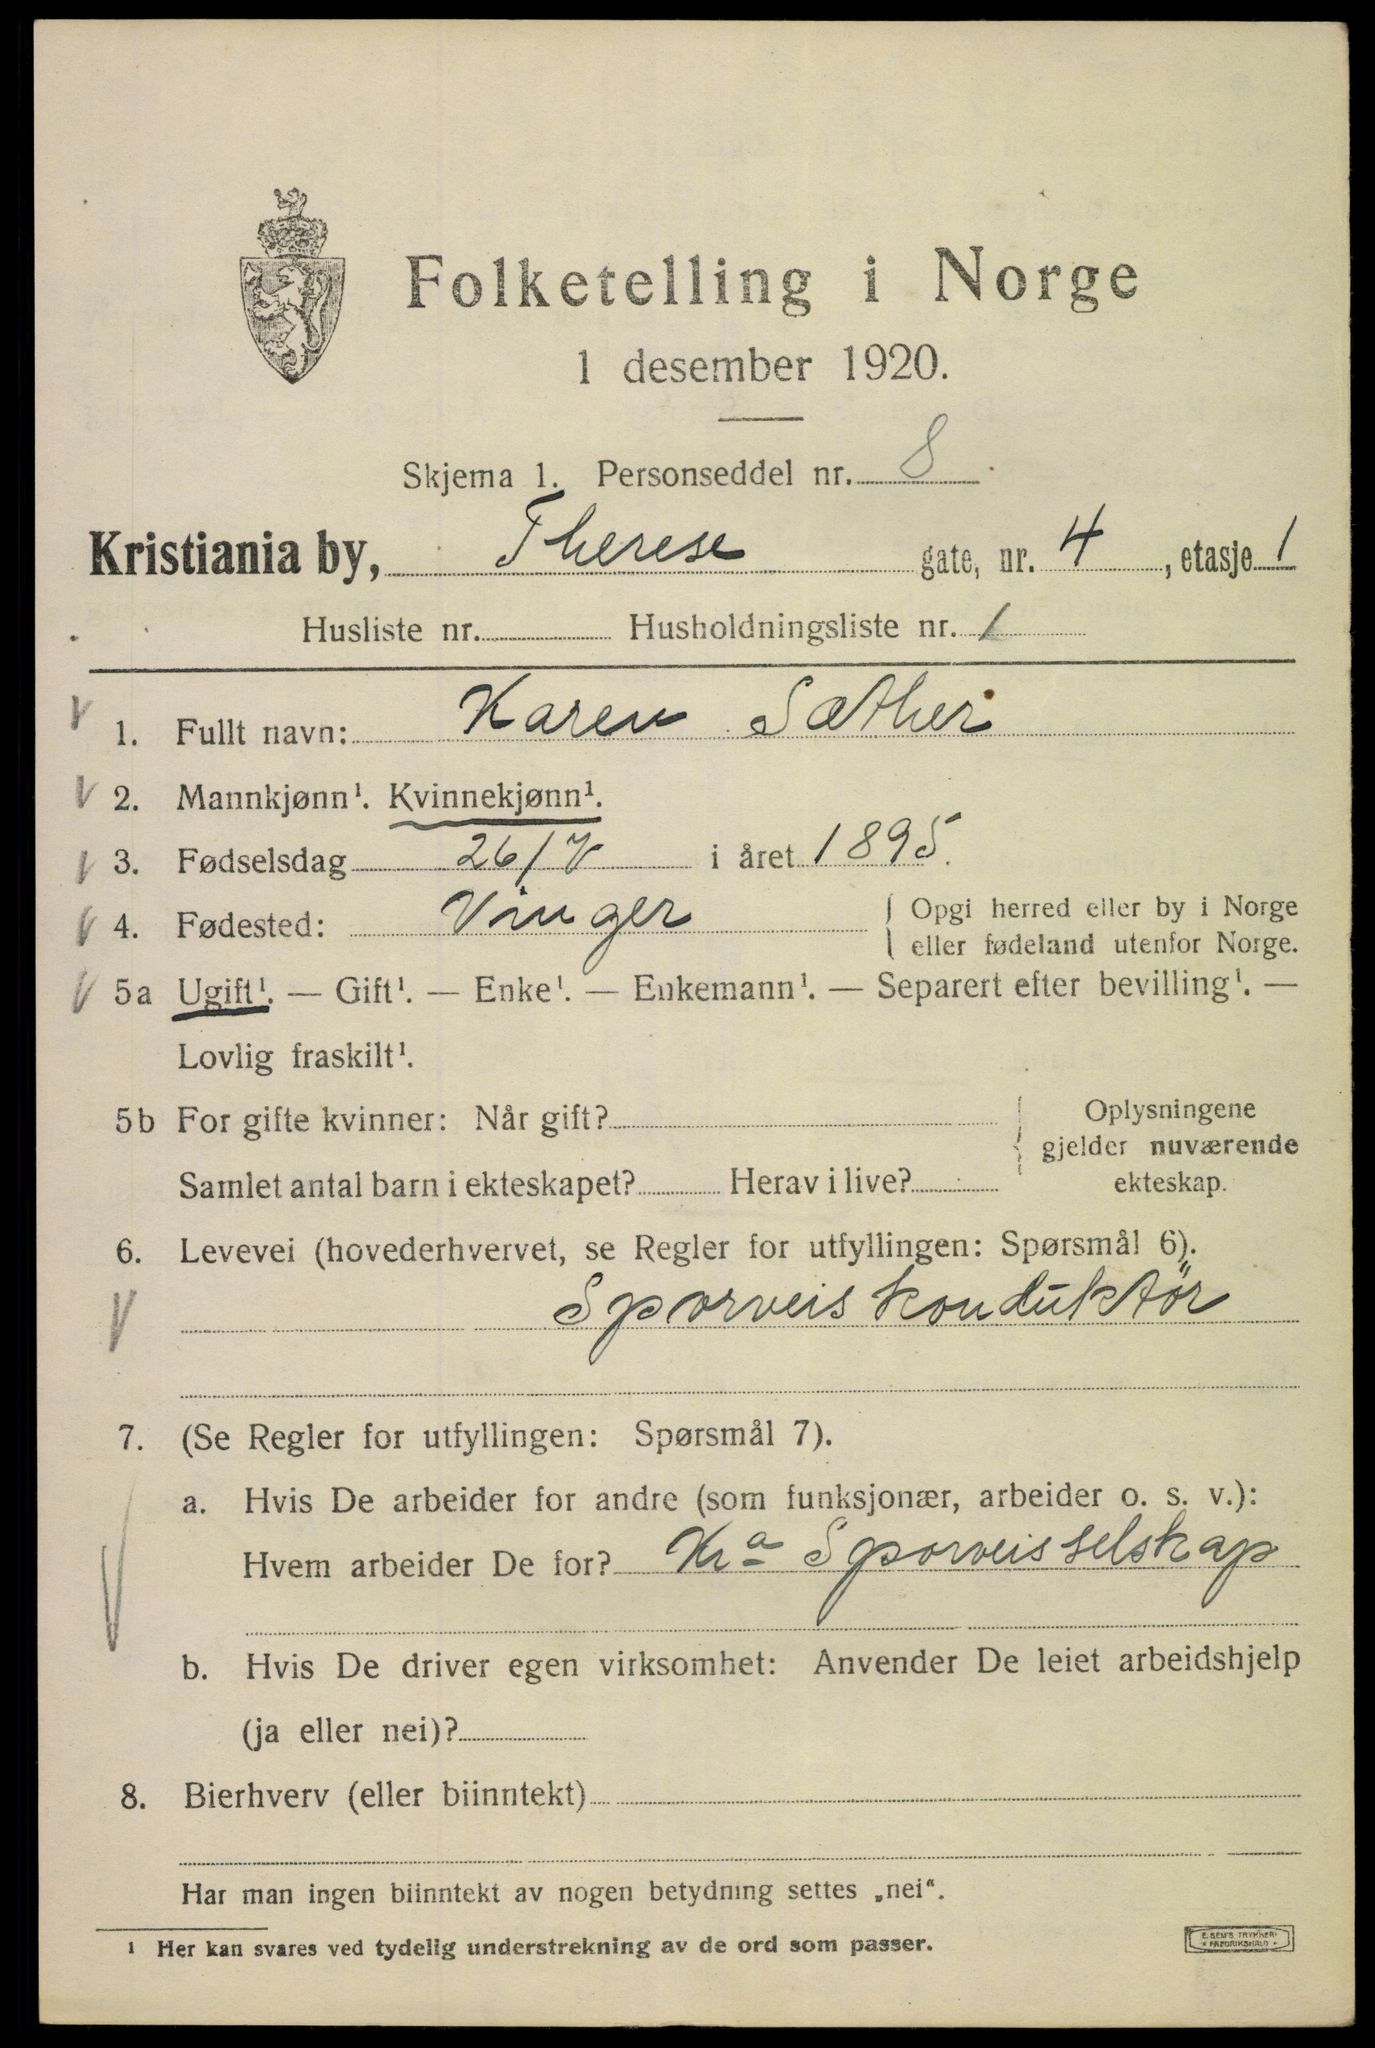 Folketelling i Norge
1 desember 1920.
Skjema 1. Personseddel nr. 8
Kristiania by, Therese gate, nr. 4, etasje 1
Husliste nr. Husholdningsliste nr. 1
1. Fullt navn: Karen Sæther
2. Mannkjønn¹. Kvinnekjønn¹.
3. Fødselsdag 26/V i året 1895.
4. Fødested: Vinger { Opgi herred eller by i Norge
eller fødeland utenfor Norge.
5a Ugift¹. — Gift¹. — Enke¹. — Enkemann¹. — Separert efter bevilling¹. —
Lovlig fraskilt¹.
5b For gifte kvinner: Når gift? { Oplysningene
gjelder nuværende
Samlet antal barn i ekteskapet? Herav i live? ekteskap.
6. Levevei (hovederhvervet, se Regler for utfyllingen: Spørsmål 6).
Sporveiskonduktör
7. (Se Regler for utfyllingen: Spørsmål 7).
a. Hvis De arbeider for andre (som funksjonær, arbeider o. s. v.):
Hvem arbeider De for? Kra Sporveisselskap
b. Hvis De driver egen virksomhet: Anvender De leiet arbeidshjelp
(ja eller nei)?
8. Bierhverv (eller biinntekt)
Har man ingen biinntekt av nogen betydning settes „nei“.
¹ Her kan svares ved tydelig understrekning av de ord som passer.
E. SEM'S TRYKKERI
• FREDRIKSHALD •